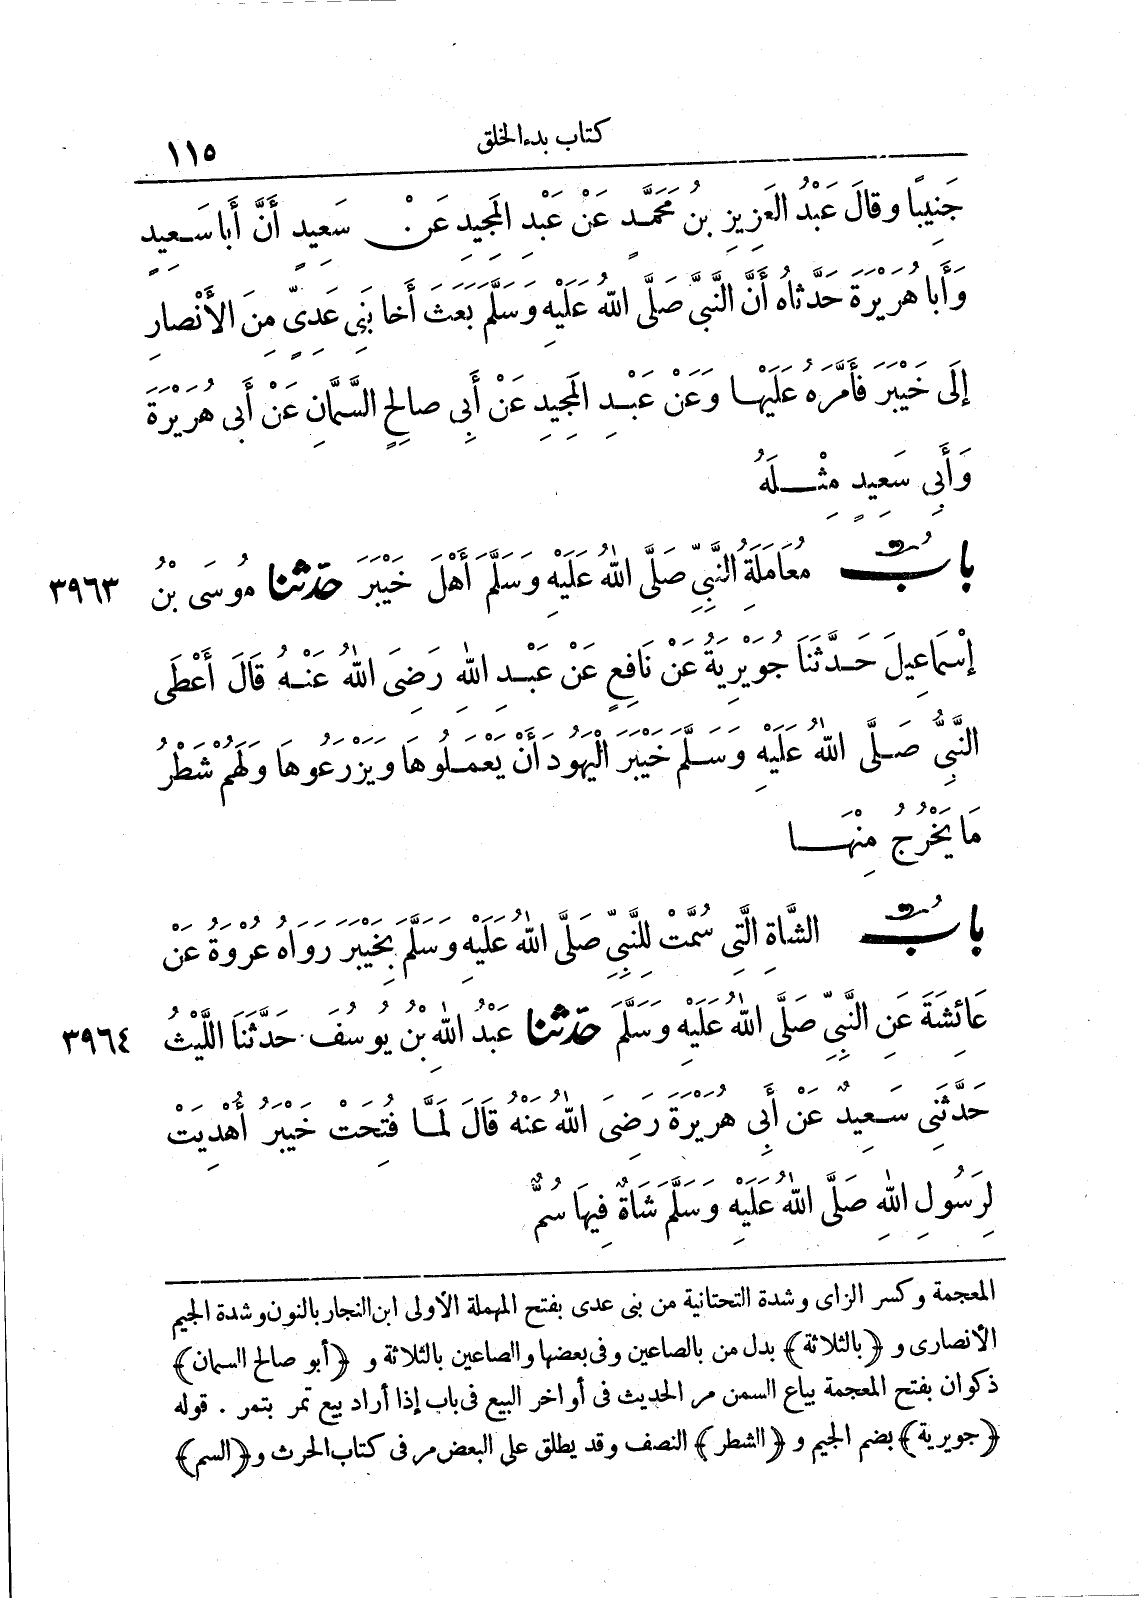 كتاب بدء الخلق
١١٥
جَنِيبًا وقالَ عَبْدُ العَزِيزِ بنُ مُحَمَّدٍ عَنْ عَبْدِ المَجِيدِ عَنْ سَعِيدٍ أَنَّ أَبا سَعِيدٍ
وَأَبا هُرَيْرَةَ حَدَّثاهُ أَنَّ النَّبِيَّ صَلَّى اللهُ عَلَيْهِ وَسَلَّمَ بَعَثَ أَخا بَنِي عَدِيٍّ مِنَ الأَنْصارِ
إلَى خَيْبَرَ فأَمَّرَهُ عَلَيْها وَعَنْ عَبْدِ المَجِيدِ عَنْ أَبِي صالِحٍ السَّمَّانِ عَنْ أَبِي هُرَيْرَةَ
وَأَبِي سَعِيدٍ مِثْلَهُ
بابُ مُعَامَلَةِ النَّبِيِّ صَلَّى اللهُ عَلَيْهِ وَسَلَّمَ أَهْلَ خَيْبَرَ حَدَّثنا مُوسَى بْنُ
٣٩٦٣
إسْمَاعِيلَ حَدَّثَنَا جُوَيْرِيَةُ عَنْ نَافِعٍ عَنْ عَبْدِ اللهِ رَضِيَ اللهُ عَنْهُ قَالَ أَعْطَى
النَّبِيُّ صَلَّى اللهُ عَلَيْهِ وَسَلَّمَ خَيْبَرَ الْيَهُودَ أَنْ يَعْمَلُوهَا وَيَزْرَعُوهَا وَلَهُمْ شَطْرُ
مَا يَخْرُجُ مِنْهَا
بابُ الشَّاةِ الَّتِي سُمَّتْ لِلنَّبِيِّ صَلَّى اللهُ عَلَيْهِ وَسَلَّمَ بِخَيْبَرَ رَوَاهُ عُرْوَةُ عَنْ
عَائِشَةَ عَنِ النَّبِيِّ صَلَّى اللهُ عَلَيْهِ وَسَلَّمَ حَدَّثنا عَبْدُ اللهِ بْنُ يُوسُفَ حَدَّثَنَا اللَّيْثُ
٣٩٦٤
حَدَّثَنِي سَعِيدٌ عَنْ أَبِي هُرَيْرَةَ رَضِيَ اللهُ عَنْهُ قَالَ لَمَّا فُتِحَتْ خَيْبَرُ أُهْدِيَتْ
لِرَسُولِ اللهِ صَلَّى اللهُ عَلَيْهِ وَسَلَّمَ شَاةٌ فِيهَا سُمٌّ
المعجمة وكسر الزاى وشدة التحتانية من بنى عدى بفتح المهملة الأولى ابن النجار بالنون وشدة الجيم
الأنصارى و ﴿بالثلاثة﴾ بدل من بالصاعين وفى بعضها والصاعين بالثلاثة و ﴿أبو صالح السمان﴾
ذكوان بفتح المعجمة بياع السمن مر الحديث فى أواخر البيع فى باب إذا أراد بيع تمر بتمر . قوله
﴿جويرية﴾ بضم الجيم و ﴿الشطر﴾ النصف وقد يطلق على البعض مر فى كتاب الحرث و ﴿السم﴾